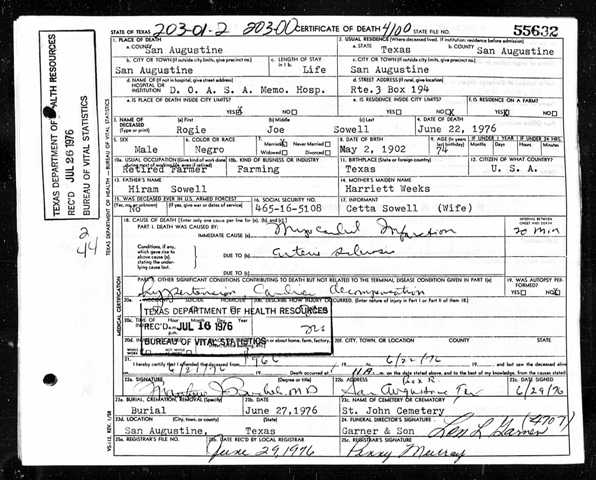 203-01-2 203-00 4100
STATE OF TEXAS CERTIFICATE OF DEATH STATE FILE NO. 55632
1. PLACE OF DEATH 2. USUAL RESIDENCE (Where deceased lived. If institution: residence before admission)
a. COUNTY San Augustine a. STATE Texas b. COUNTY San Augustine
b. CITY OR TOWN (If outside city limits, give precinct no.) c. LENGTH OF STAY in 1 b. c. CITY OR TOWN (If outside city limits, give precinct no.)
San Augustine Life San Augustine
d. NAME OF (If not in hospital, give street address) HOSPITAL OR INSTITUTION D. O. A. S. A. Memo. Hosp. d. STREET ADDRESS (If rural, give location)
Rte.3 Box 194
e. IS PLACE OF DEATH INSIDE CITY LIMITS? YES NO e. IS RESIDENCE INSIDE CITY LIMITS? YES NO f. IS RESIDENCE ON A FARM? YES NO
3. NAME OF DECEASED (Type or print) Rogie Joe Sowell 4. DATE OF DEATH June 22, 1976
5. SEX Male 6. COLOR OR RACE Negro 7. Married Never Married Widowed Divorced 8. DATE OF BIRTH May 2, 1902 9. AGE 74 IF UNDER 1 YEAR IF UNDER 24 HRS.
10a. USUAL OCCUPATION (Give kind of work done during most of working life, even if retired) Retired Farmer 10b. KIND OF BUSINESS OR INDUSTRY Farming 11. BIRTHPLACE (State or foreign country) Texas 12. CITIZEN OF WHAT COUNTRY? U. S. A.
13. FATHER'S NAME Hiram Sowell 14. MOTHER'S MAIDEN NAME Harriett Weeks
15. WAS DECEASED EVER IN U.S. ARMED FORCES? No 16. SOCIAL SECURITY NO. 465-16-5108 17. INFORMANT Cetta Sowell (Wife)
18. CAUSE OF DEATH [Enter only one cause per line for (a), (b), and (c).] INTERVAL BETWEEN ONSET AND DEATH
PART I. DEATH WAS CAUSED BY:
IMMEDIATE CAUSE (a) Myocardial Infarction 20 min
Conditions, if any, which gave rise to above cause (a), stating the underlying cause last. DUE TO (b)
DUE TO (c)
PART II. OTHER SIGNIFICANT CONDITIONS CONTRIBUTING TO DEATH BUT NOT RELATED TO THE TERMINAL DISEASE CONDITION GIVEN IN PART I(a) 19. WAS AUTOPSY PERFORMED? YES NO
Hypertension Cardiac decompensation
TEXAS DEPARTMENT OF HEALTH RESOURCES
REC'D JUL 16 1976
BUREAU OF VITAL STATISTICS
20f. CITY, TOWN, OR LOCATION COUNTY STATE
21. I hereby certify that I attended the deceased from 1966 6/22/76 and last saw the deceased alive
6/21/76 Death occurred at 11A. m. on the date stated above, and to the best of my knowledge, from the causes stated
22a. SIGNATURE M.D. 22b. ADDRESS San Augustine Tex 22c. DATE SIGNED 6/29/76
23a. BURIAL, CREMATION, REMOVAL (Specify) Burial 23b. DATE June 27,1976 23c. NAME OF CEMETERY OR CREMATORY St. John Cemetery
23d. LOCATION (City, town, or county) (State) San Augustine, Texas 24. FUNERAL DIRECTOR'S SIGNATURE Garner & Son Len L Garner (4707)
25a. REGISTRAR'S FILE NO. 25b. DATE REC'D BY LOCAL REGISTRAR June 29 1976 25c. REGISTRAR'S SIGNATURE Penny Murray
TEXAS DEPARTMENT OF HEALTH RESOURCES
REC'D JUL 26 1976
BUREAU OF VITAL STATISTICS
2
44
TEXAS DEPARTMENT OF HEALTH — BUREAU OF VITAL STATISTICS
MEDICAL CERTIFICATION
VS-112, REV. 1/58